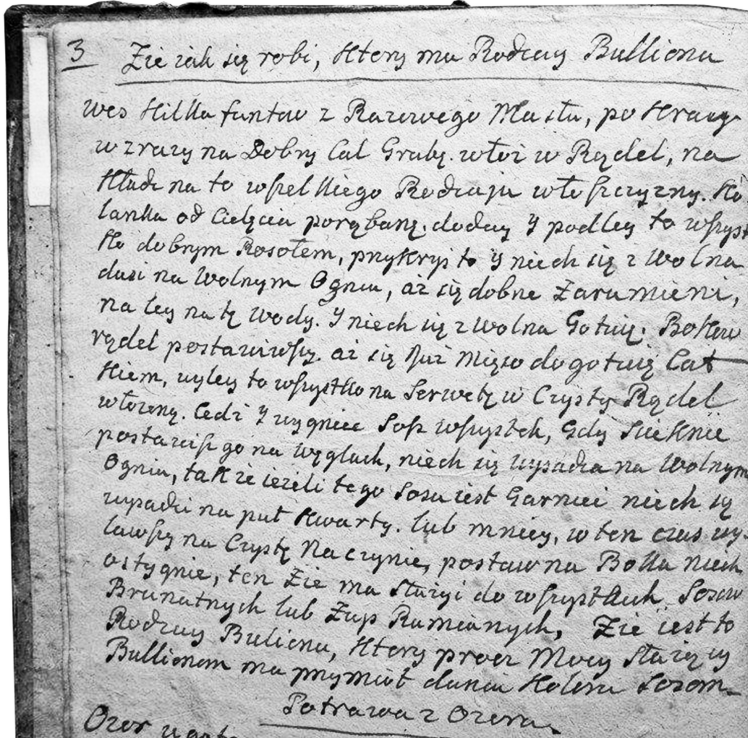 3 Zie iak się robi, Ktory ma Rodzay Bullionu
wes Kilka funtow z Razowego Masła, po Kray
w zrazy na Dobry Cal Gruby. włoż w Rądel, na
Kładz na to wszelkiego Rodzaju włoszczyzny. Ko
lanka od Cielęcia porąbany. doday y podley to wszyst
ko dobrym Rosołem, przykryi to y niech się z Wolna
dusi na Wolnym Ogniu, aż się dobrze Zarumieni,
na ley na tę Wody. y niech się z wolna Gotuię. Bokow
rądel postawiwszy. aż się Już Mięso dogotuię Cał
Kiem, wyley to wszystko na Serwetę w Czysty Rądel
włożony. Cedź y wygnieć Sos wszystek, Gdy Sieknie
postawisz go na Węglach, niech się wysadza na Wolnym
Ogniu, tak że ieżeli tego Sosu iest Garniec niech się
wysadzi na puł Kwarty. lub mniey, w ten czas wy-
lawszy na Czystę Naczynie, postaw na Bolla niech
ostygnie, ten Zie ma służyć do wszystkich Sosow
Brunatnych lub Zup Rumianych, Zie iest to
Rodzay Bulionu, Ktory przez Mocy Starszy
Bullionom ma przymiot dania Koloru Sosom_
Potrawa z Ozora_
Ozor